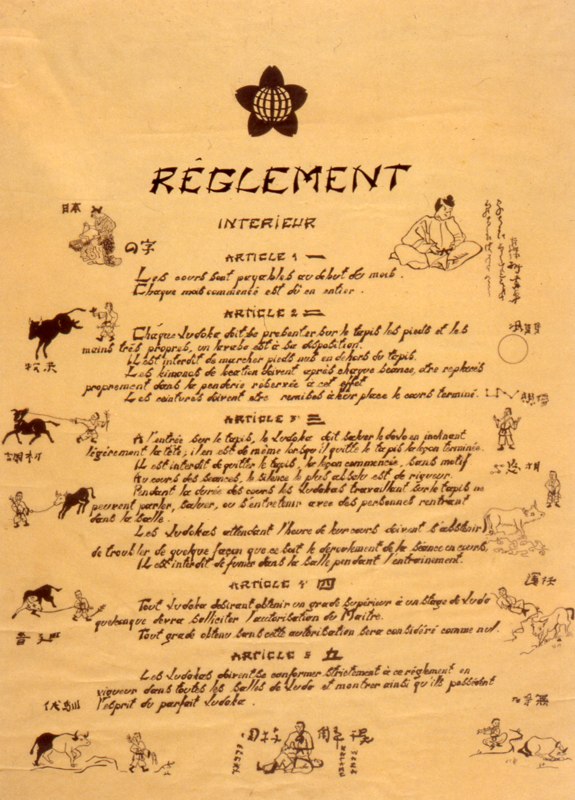 RÉGLEMENT
INTERIEUR
日本
の字
ARTICLE 1 一
Les cours sont payables au début du mois.
Chaque mois commencé est dû en entier.
ARTICLE 2 二
Chaque Judoka doit se presenter sur le tapis les pieds et les
mains très propres, un lavabo est à sa disposition.
Il est interdit de marcher pieds nus en dehors du tapis.
Les kimonos de location doivent après chaque séance, être replacés
proprement dans la penderie réservée à cet effet
Les ceintures doivent etre remises à leur place le cours terminé.
ARTICLE 3 三
A l'entrée sur le tapis, le Judoka doit saluer le dojo en inclinant
légèrement la tête; il en est de même lorsqu'il quitte le tapis la leçon terminée.
Il est interdit de quitter le tapis, la leçon commencée, sans motif
Au cours des séances, le silence le plus absolu est de rigueur.
Pendant la durée des cours les Judokas travaillant sur le tapis ne
peuvent parler, saluer, ou s'entretenir avec des personnes rentrant
dans la salle.
Les Judokas attendant l'heure de leur cours doivent s'abstenir
de troubler de quelque façon que ce soit le déroulement de la séance en cours.
Il est interdit de fumer dans la salle pendant l'entrainement.
ARTICLE 4 四
Tout Judoka désirant obtenir un grade supérieur à un stage de Judo
quelconque devra solliciter l'autorisation du Maitre.
Tout grade obtenu sans cette autorisation sera considéré comme nul.
ARTICLE 5 五
Les Judokas doivent se conformer strictement à ce règlement en
vigueur dans toutes les salles de Judo et montrer ainsi qu'ils possèdent
l'esprit du parfait Judoka.